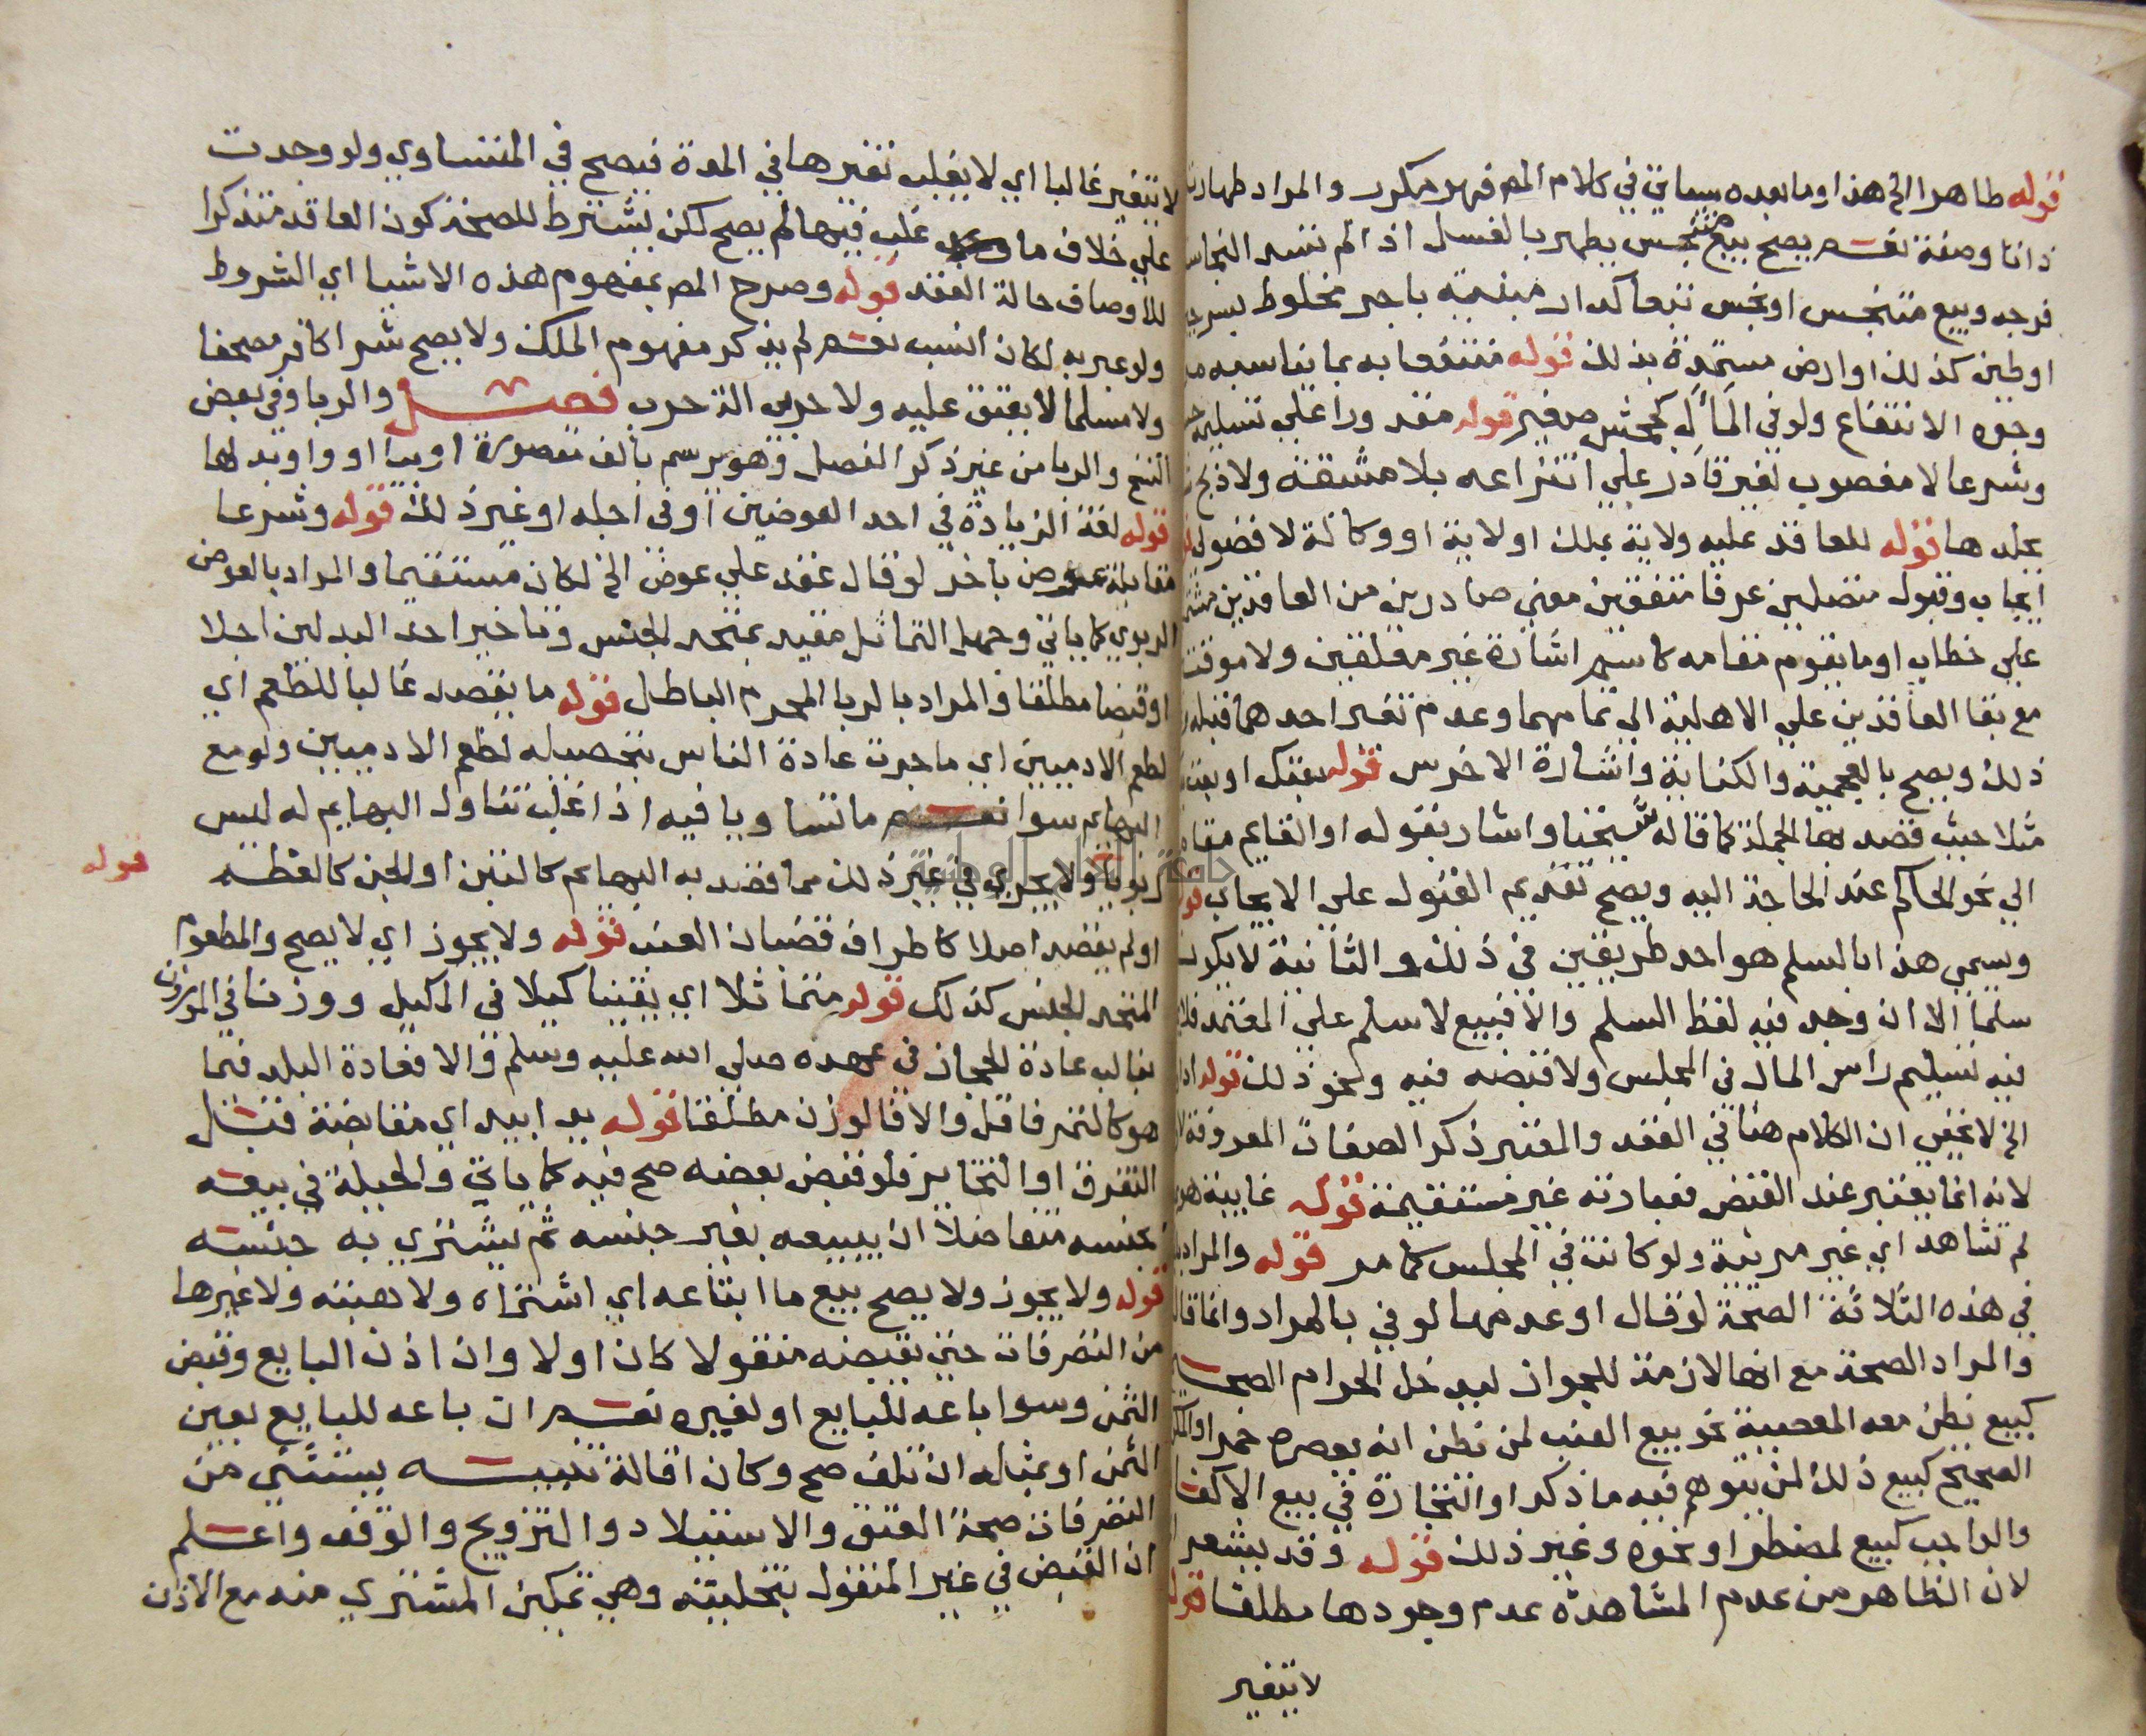 قوله طاهرا الخ هذا وما بعده سياتي في كلام المصم فهو مكرر والمراد طهارته
ذاتا وصفة نعم يصح بيع متنجس يطهر بالغسل اذا لم تسد النجاسة
فرجه وبيع متنجس او نجس تبعا كدار مبنية باجر مخلوط بسرجين
او طين كذلك او ارض مسمدة بذلك قوله منتفعا به بما يناسبه من
وجوه الانتفاع ولو في المآل كجحش صغير قوله مقدورا على تسليمه حسا
وشرعا لا مغصوب لغير قادر على انتزاعه بلا مشقة ولا
بجلدها قوله للعاقد عليه ولاية بملك او ولاية او وكالة لا فضولي
ايجاب وقبول متصلين عرفا متفقين معنى صادرين من العاقدين
على خطاب او ما يقوم مقامه كاسم اشارة غير معلقين ولا موقتين
مع بقا العاقدين على الاهلية الى تمامهما وعدم تغير احدهما قبله
ذلك ويصح بالعجمية والكناية واشارة الاخرس قوله بعتك او بعت
مثلا حيث قصد بها الجملة كما قاله شيخنا واشار بقوله او القايم مقامه
الى نحو الحاكم عند الحاجة اليه ويصح تقديم القبول على الايجاب قوله
ويسمى هذا بالسلم هو احد طريقين في ذلك والثانية لا يكون
سلما الا ان وجد فيه لفظ السلم والا فبيع لا سلم على المعتمد فلا
فيه تسليم راس المال في المجلس ولا قبضه فيه ونحو ذلك قوله اذا
الخ لا يخفى ان الكلام هنا في العقد والمعتبر ذكر الصفات المعروفة
لانه انما يعتبر عند القبض فعبارته غير مستقيمة قوله غايبة
لم تشاهد اي غير مرئية ولو كانت في المجلس كما مر قوله والمراد
في هذه الثلاثة الصحة لو قال او عدمها لوفى بالمراد وانما قال
والمراد الصحة مع انها لازمة للجواز ليدخل الحرام الصحيح
كبيع نظن معه المعصية نحو بيع العنب لمن نظن انه يعصره خمرا
الصحيح كبيع ذلك لمن يتوهم فيه ما ذكر او التجارة في بيع الاكفان
والواجب كبيع لمضطر او نحوه وغير ذلك قوله وقد يشعر
لان الظاهر من عدم المشاهدة عدم وجودها مطلقا قوله
لا يتغير
لا يتغير غالبا اي لا يغلب تغيرها في المدة فيصح في المتساوي ولو وجدت
على خلاف ما غلب فيها لم يصح لكن يشترط للصحة كون العاقد متذكرا
للاوصاف حالة العقد قوله وصرح المصم بمفهوم هذه الاشيا اي الشروط
ولو عبر به لكان انسب نعم لم يذكر مفهوم الملك ولا يصح شرا كافر مصحفا
ولا مسلما لا يعتق عليه ولا حربي الة حرب فصل والربا وفي بعض
النسخ والربا من غير ذكر الفصل وهو يرسم بالف مقصورة او بيا او واو بدلها
قوله لغة الزيادة في احد العوضين او في اجله او غير ذلك قوله وشرعا
مقابلة عوض باخر لو قال عقد على عوض الخ لكان مستقيما والمراد بالعوض
الربوي كما ياتي وجهل التماثل مقيد بمتحد الجنس وتاخير احد البدلين اجلا
او قبضا مطلقا والمراد بالربا المحرم الباطل قوله ما يقصد غالبا للطعم اي
لطعم الادميين اي ما جرت عادة الناس بتحصيله لطعم الادميين ولو مع
البهايم سوا نعم ما تساويا فيه اذا غلب تناول البهايم له ليس
ربويا ولا يجري في غير ذلك مما قصد به البهايم كالتين او الجن كالعظم قوله
او لم يقصد اصلا كاطراف قضبان العنب قوله ولا يجوز اي لا يصح والمطعوم
المتحد الجنس كذلك قوله متماثلا اي يقينا كيلا في المكيل ووزنا في الموزون
بغالب عادة الحجاز في عهده صلى الله عليه وسلم والا فعادة البلد فيما
هو كالتمر فاقل والا فالوزن مطلقا قوله يدا بيد اي مقابضة قبل
التفرق او التخاير فلو قبض بعضه صح فيه كما ياتي والحيلة في بيعه
بجنسه متفاضلا ان يبيعه بغير جنسه ثم يشتري به جنسه
قوله ولا يجوز ولا يصح بيع ما ابتاعه اي اشتراه ولا هبته ولا غيرها
من التصرفات حتى يقبضه منقولا كان اولا وان اذن البايع وقبض
الثمن وسوا باعه للبايع او لغيره نعم ان باعه للبايع بعين
الثمن او بمثله ان تلف صح وكان اقالة تنبيه يستثنى من
التصرفات صحة العتق والاستيلاد والتزويج والوقف واعلم
ان القبض في غير المنقول بتخليته وهي تمكين المشتري منه مع الاذن